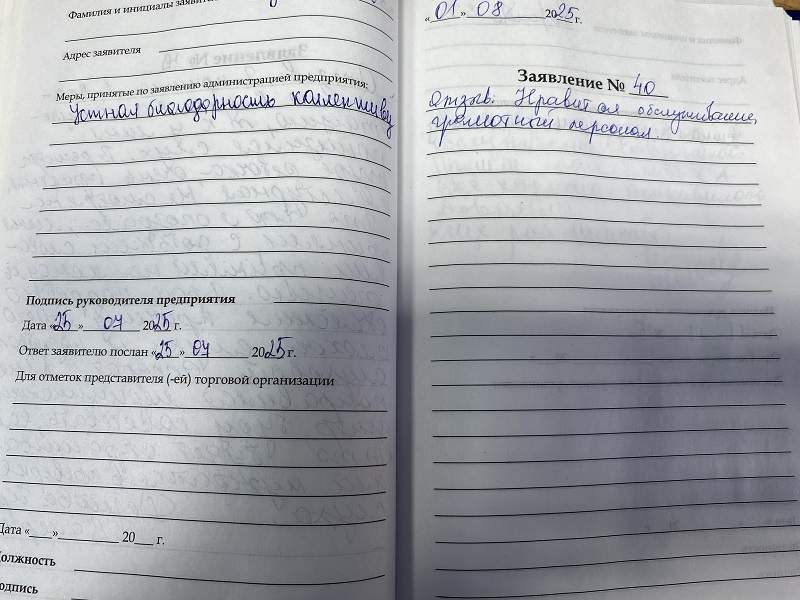 Фамилия и инициалы заявителя
Адрес заявителя
Меры, принятые по заявлению администрацией предприятия:
Устная благодарность коллективу
Подпись руководителя предприятия
Дата «25» 07 2025 г.
Ответ заявителю послан «25» 07 2025 г.
Для отметок представителя (-ей) торговой организации
Дата «___» ________ 20___ г.
Должность
Подпись
«01» 08 2025 г.
Заявление № 40
Отзыв: Нравится обслуживание,
грамотный персонал.